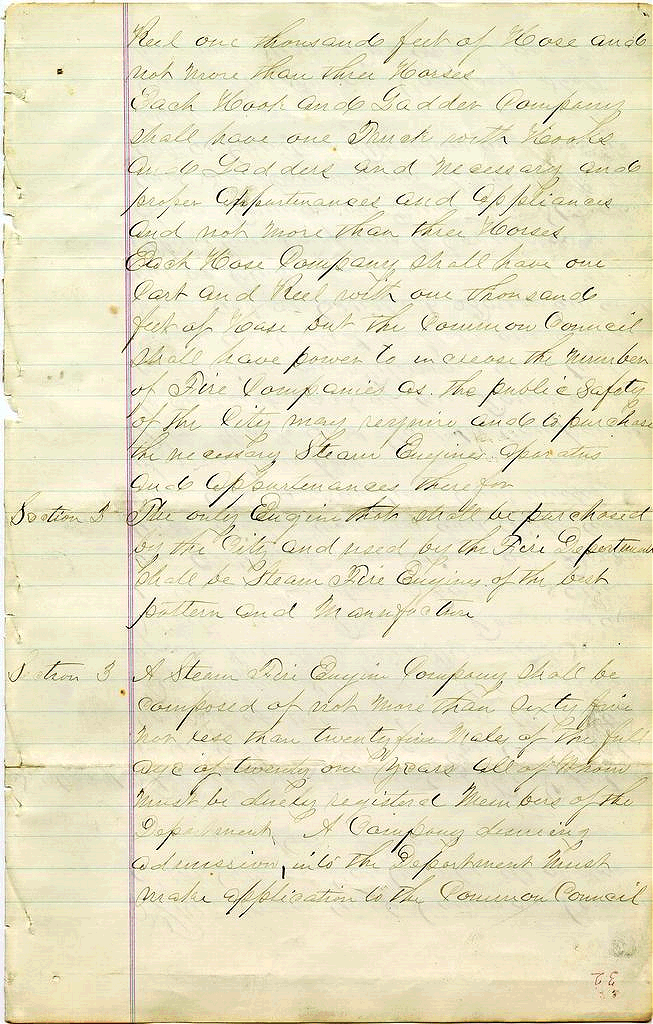 Reel one thousand feet of Hose and
not more than three Horses
Each Hook and Ladder Company
shall have one Truck with Hooks
and Ladders and necessary and
proper Appurtinances and Appliances
and not more than three Horses
Each Hose Company shall have one
Cart and Reel with one thousand
feet of Hose but the Common Council
shall have power to increase the Number
of Fire Companies as the public Safety
of the City may require and to purchase
the necessary Steam Engines
and Appurtenances therefor
Section 3 The only Engine that shall be purchased
by the City and used by the Fire Department
shall be Steam Fire Engines of the best
pattern and
Section 3 A Steam Fire Engine Company shall be
composed of not more than Sixty five
nor less than twenty five Males of the full
age of twenty one Years All of whom
must be duely registerd Members of the
Department A Company desireing
admission, into the Department Must
make application to the Common Council